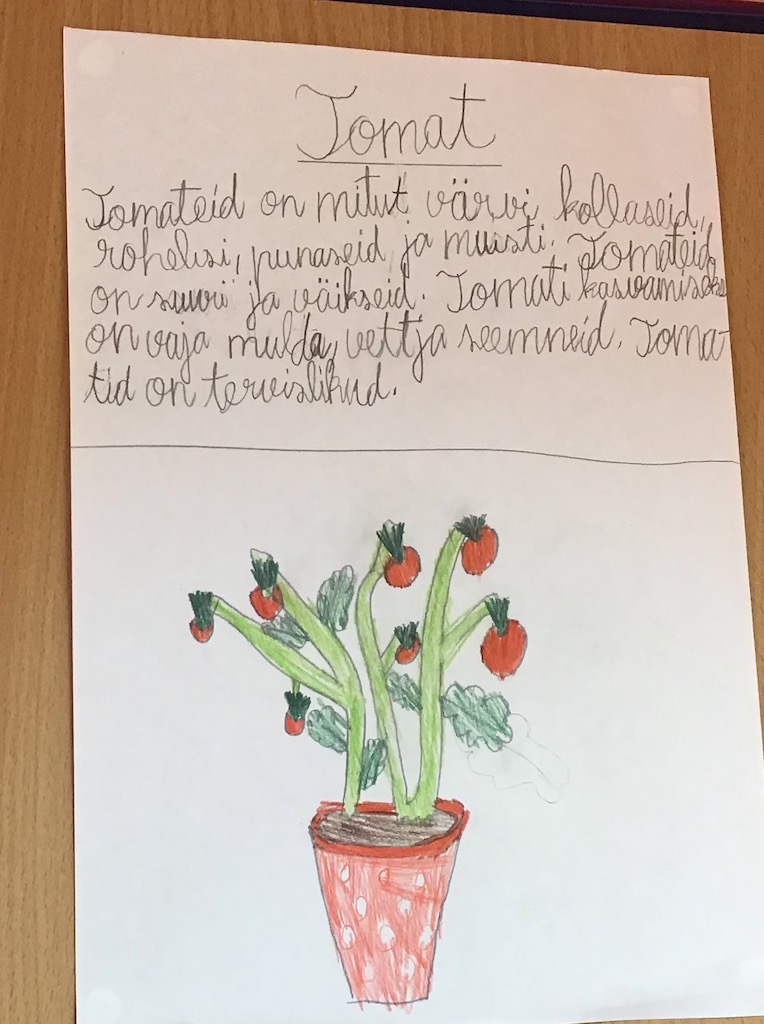 Tomat
Tomateid on mitut värvi kollaseid,
rohelisi, punaseid ja musti. Tomateid
on suuri ja väikseid. Tomati kasvamiseks
on vaja mulda, vett ja seemneid. Toma-
tid on tervislikud.